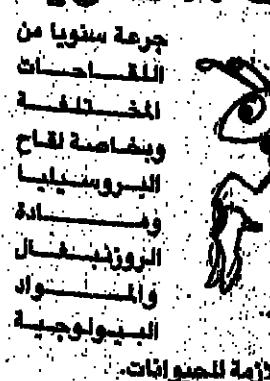 جرعة سنويا من
اللقاحات
المختلفة
وبخاصة لقاح
البروسيليا
ومادة
الروزنبغال
والمواد
البيولوجية
لازمة للحيوانات.